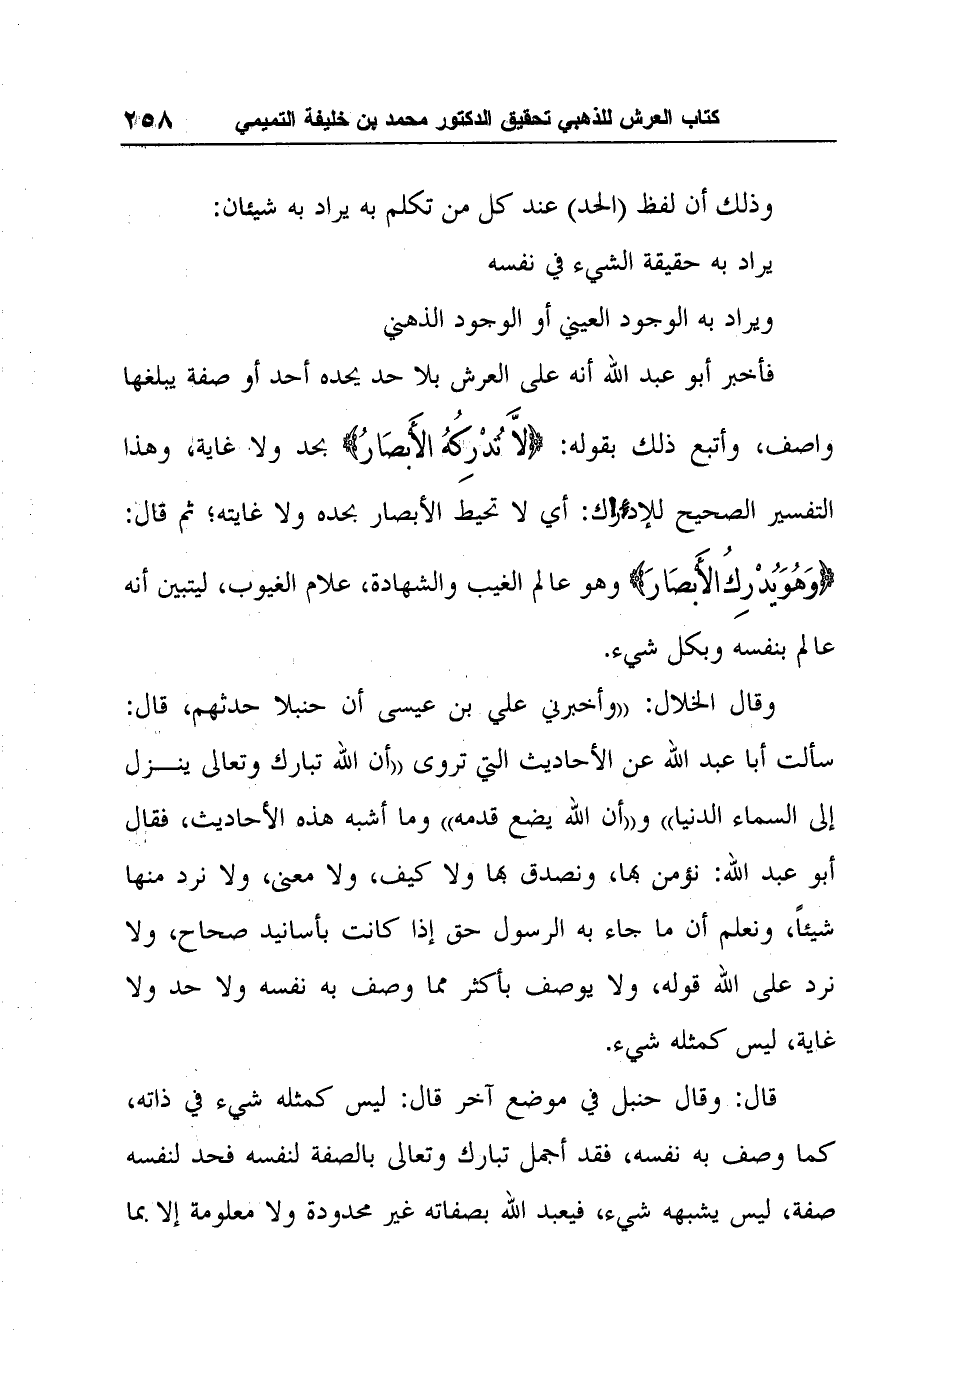 كتاب العرش للذهبي تحقيق الدكتور محمد بن خليفة التميمي ٢٥٨
وذلك أن لفظ (الحد) عند كل من تكلم به يراد به شيئان:
يراد به حقيقة الشيء في نفسه
ويراد به الوجود العيني أو الوجود الذهني
فأخبر أبو عبد الله أنه على العرش بلا حد يحده أحد أو صفة يبلغها
واصف، وأتبع ذلك بقوله: ﴿لاَّ تُدْرِكُهُ الأَبصَارُ﴾ بحد ولا غاية، وهذا
التفسير الصحيح للإدراك: أي لا تحيط الأبصار بحده ولا غايته؛ ثم قال:
﴿وَهُوَ يُدْرِكُ الأَبصَارَ﴾ وهو عالم الغيب والشهادة، علام الغيوب، ليتبين أنه
عالم بنفسه وبكل شيء.
وقال الخلال: ((وأخبرني علي بن عيسى أن حنبلا حدثهم، قال:
سألت أبا عبد الله عن الأحاديث التي تروى ((أن الله تبارك وتعالى ينـــزل
إلى السماء الدنيا)) و((أن الله يضع قدمه)) وما أشبه هذه الأحاديث، فقال
أبو عبد الله: نؤمن بها، ونصدق بها ولا كيف، ولا معنى، ولا نرد منها
شيئاً، ونعلم أن ما جاء به الرسول حق إذا كانت بأسانيد صحاح، ولا
نرد على الله قوله، ولا يوصف بأكثر مما وصف به نفسه ولا حد ولا
غاية، ليس كمثله شيء.
قال: وقال حنبل في موضع آخر قال: ليس كمثله شيء في ذاته،
كما وصف به نفسه، فقد أجمل تبارك وتعالى بالصفة لنفسه فحد لنفسه
صفة، ليس يشبهه شيء، فيعبد الله بصفاته غير محدودة ولا معلومة إلا بما